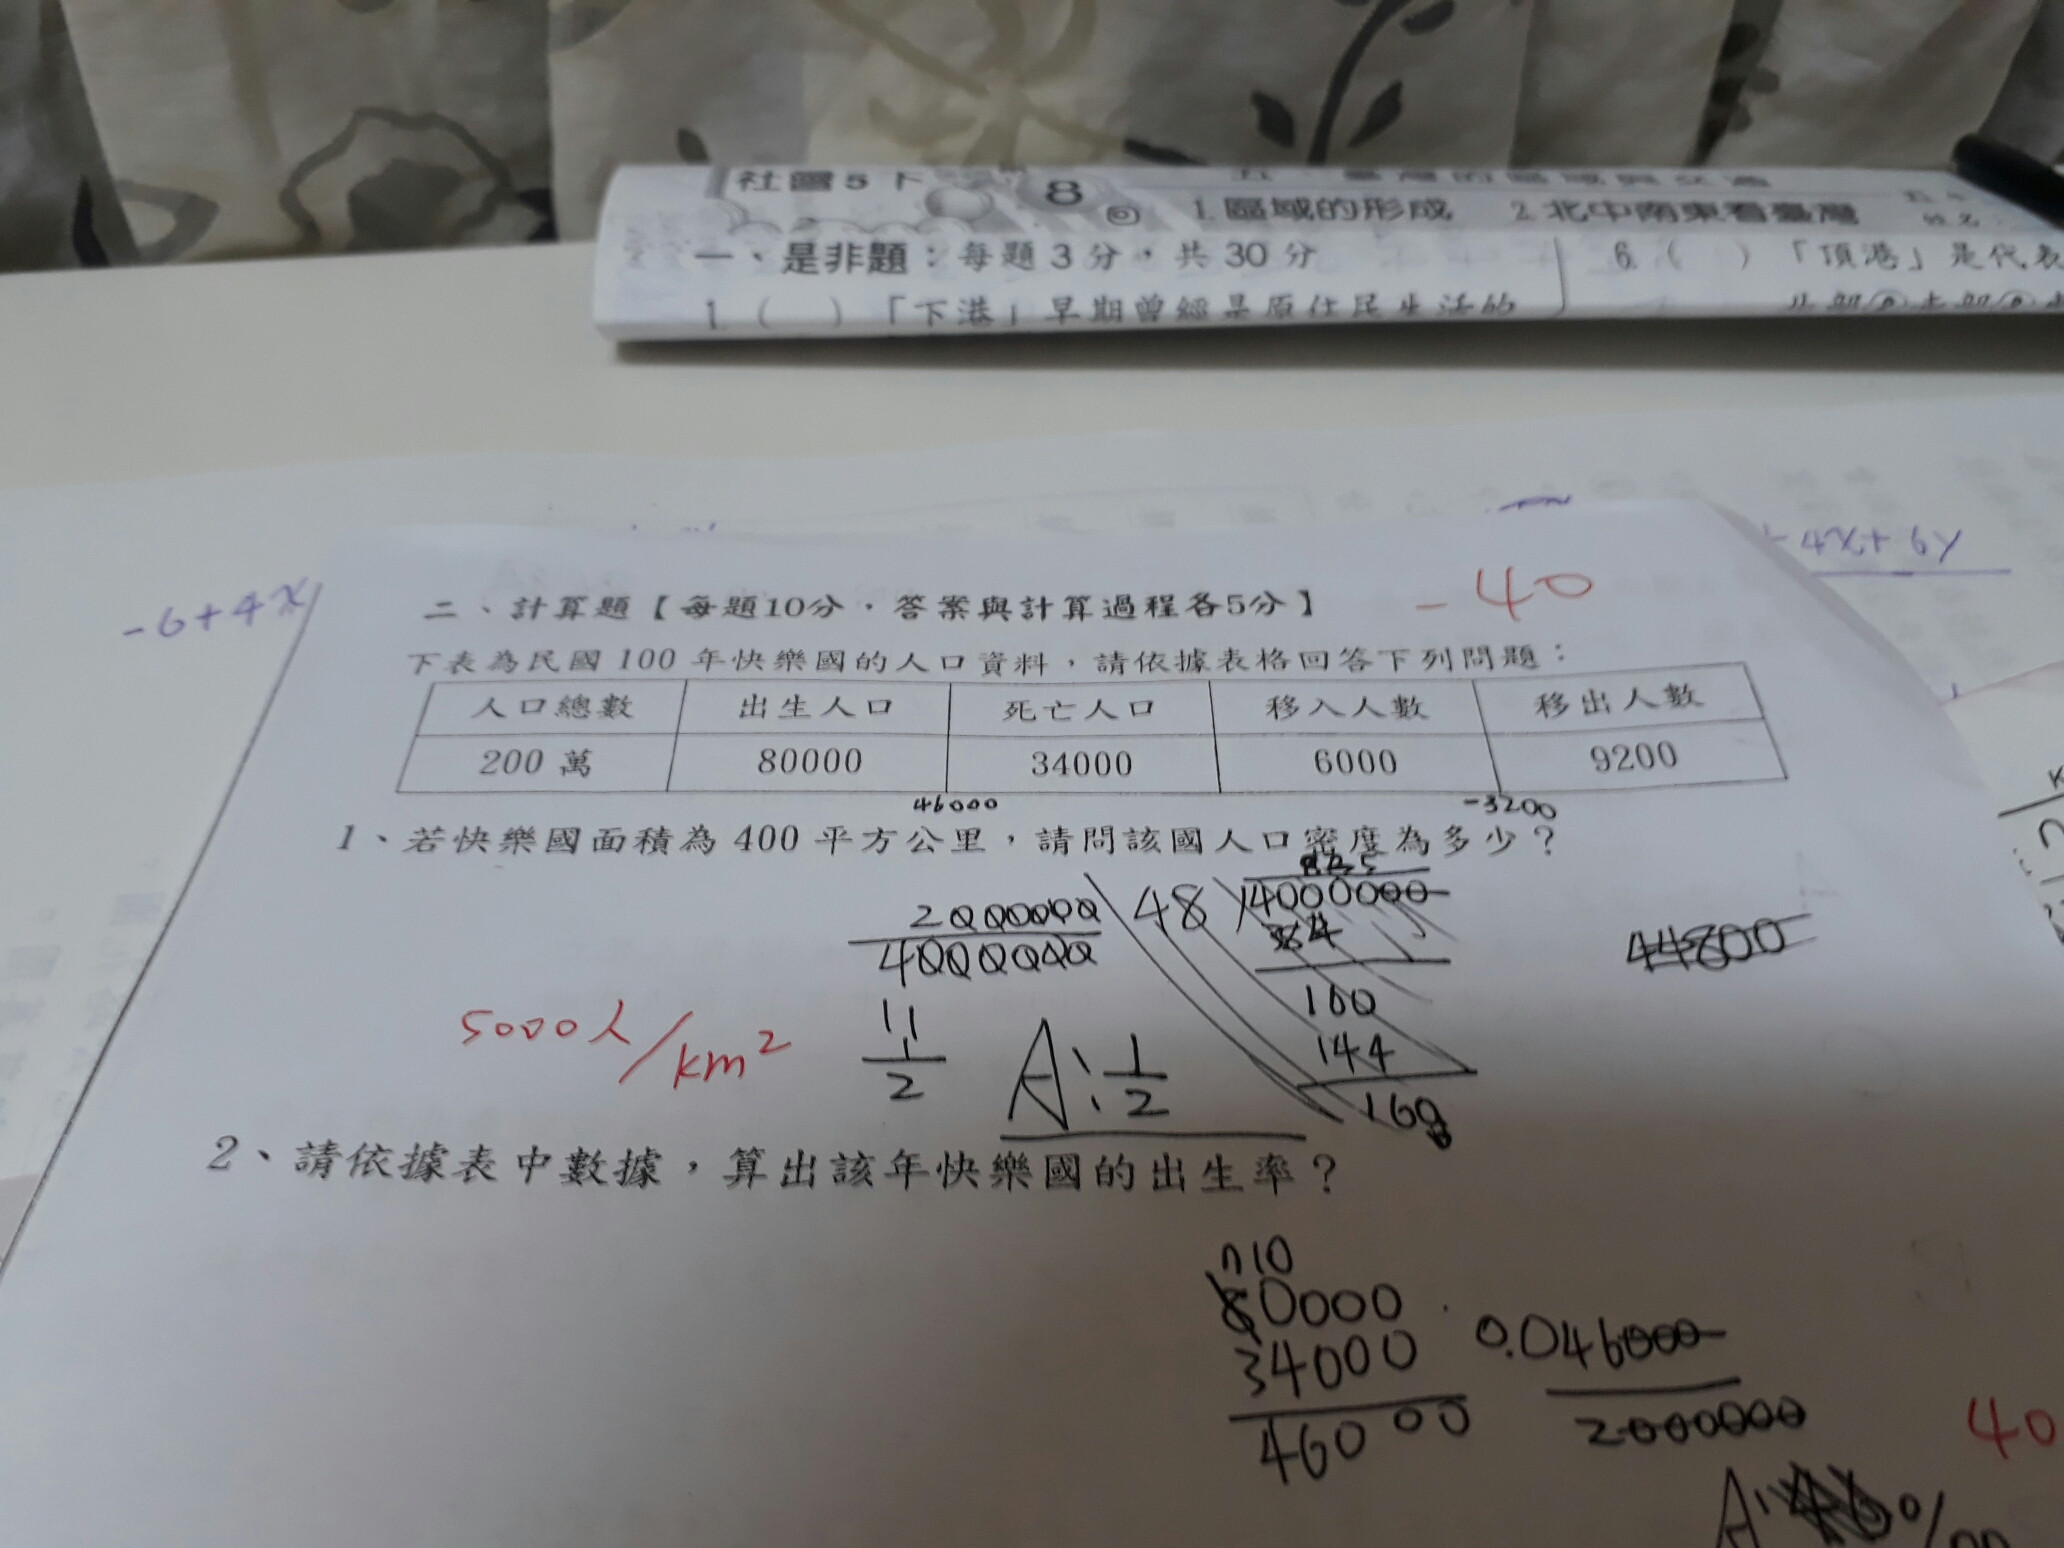 社 5 下 8 回 1.區域的形成 2.北中南東看臺灣
一、是非題：每題3分，共30分
1.（ ）「下港」早期曾經是原住民生活的
6.（ ）「頂港」是代表
-6+4x
4x+6y
二、計算題【每題10分，答案與計算過程各5分】
-40
下表為民國100年快樂國的人口資料，請依據表格回答下列問題：
人口總數 出生人口 死亡人口 移入人數 移出人數
200萬 80000 34000 6000 9200
46000 -3200
1、若快樂國面積為400平方公里，請問該國人口密度為多少？
2000000
4000000
48 4000000
44800
160
144
160
11
1
2
A: 1
2
5000人/km²
2、請依據表中數據，算出該年快樂國的出生率？
10
80000
34000
46000
0.046000
2000000
40
A: